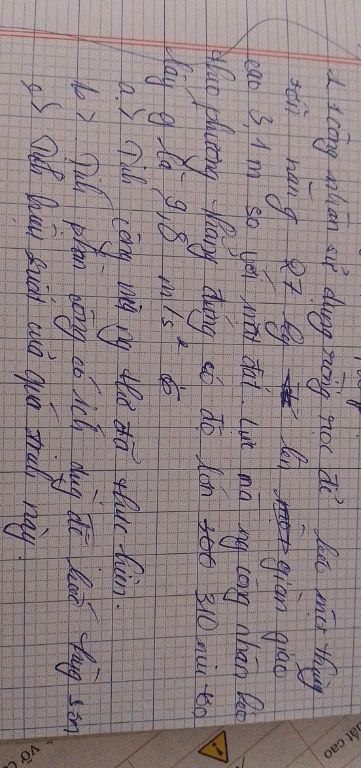 1 công nhân sử dụng ròng rọc để kéo một thùng
sơn nặng 27 kg lên giàn giáo
cao 3,1 m so với mặt đất. lực mà ng công nhân kéo
theo phương thẳng đứng có độ lớn 310 niu tơ
lấy g là 9,8 m/s²
a.> Tính công mà ng thợ đã thực hiện.
b> Tính phần công có ích dùng để kéo thùng sơn
c> Tính hiệu suất của quá trình này.